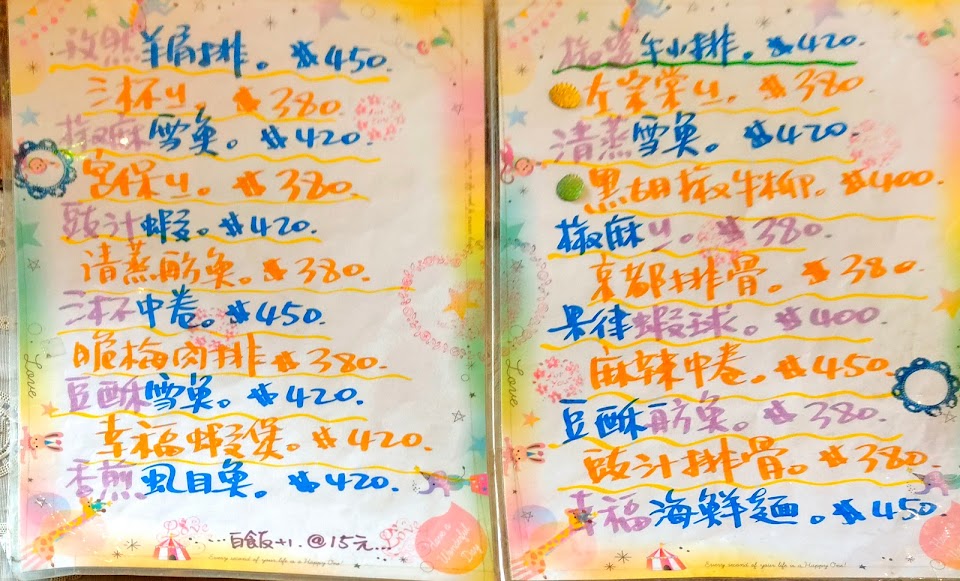 孜然羊肩排。$450.
三杯ㄐ。$380.
椒麻雪魚。$420.
宮保ㄐ。$380.
豉汁蝦。$420.
清蒸魴魚。$380.
三杯中卷。$450.
脆梅肉排$380.
豆酥雪魚。$420.
幸福蝦煲。$420.
香煎虱目魚。$420.
白飯+1.@15元...
Love
Every second of your life is a Happy One!
牛小排。$420.
左宗棠ㄐ。$380
清蒸雪魚。$420
黑胡椒牛柳。$400.
椒麻ㄐ。$380.
京都排骨。$380.
果律蝦球。$400.
麻辣中卷。$450.
豆酥魴魚。$380.
豉汁排骨。$380
幸福海鮮麵。$450.
Love
Every second of your life is a Happy One!